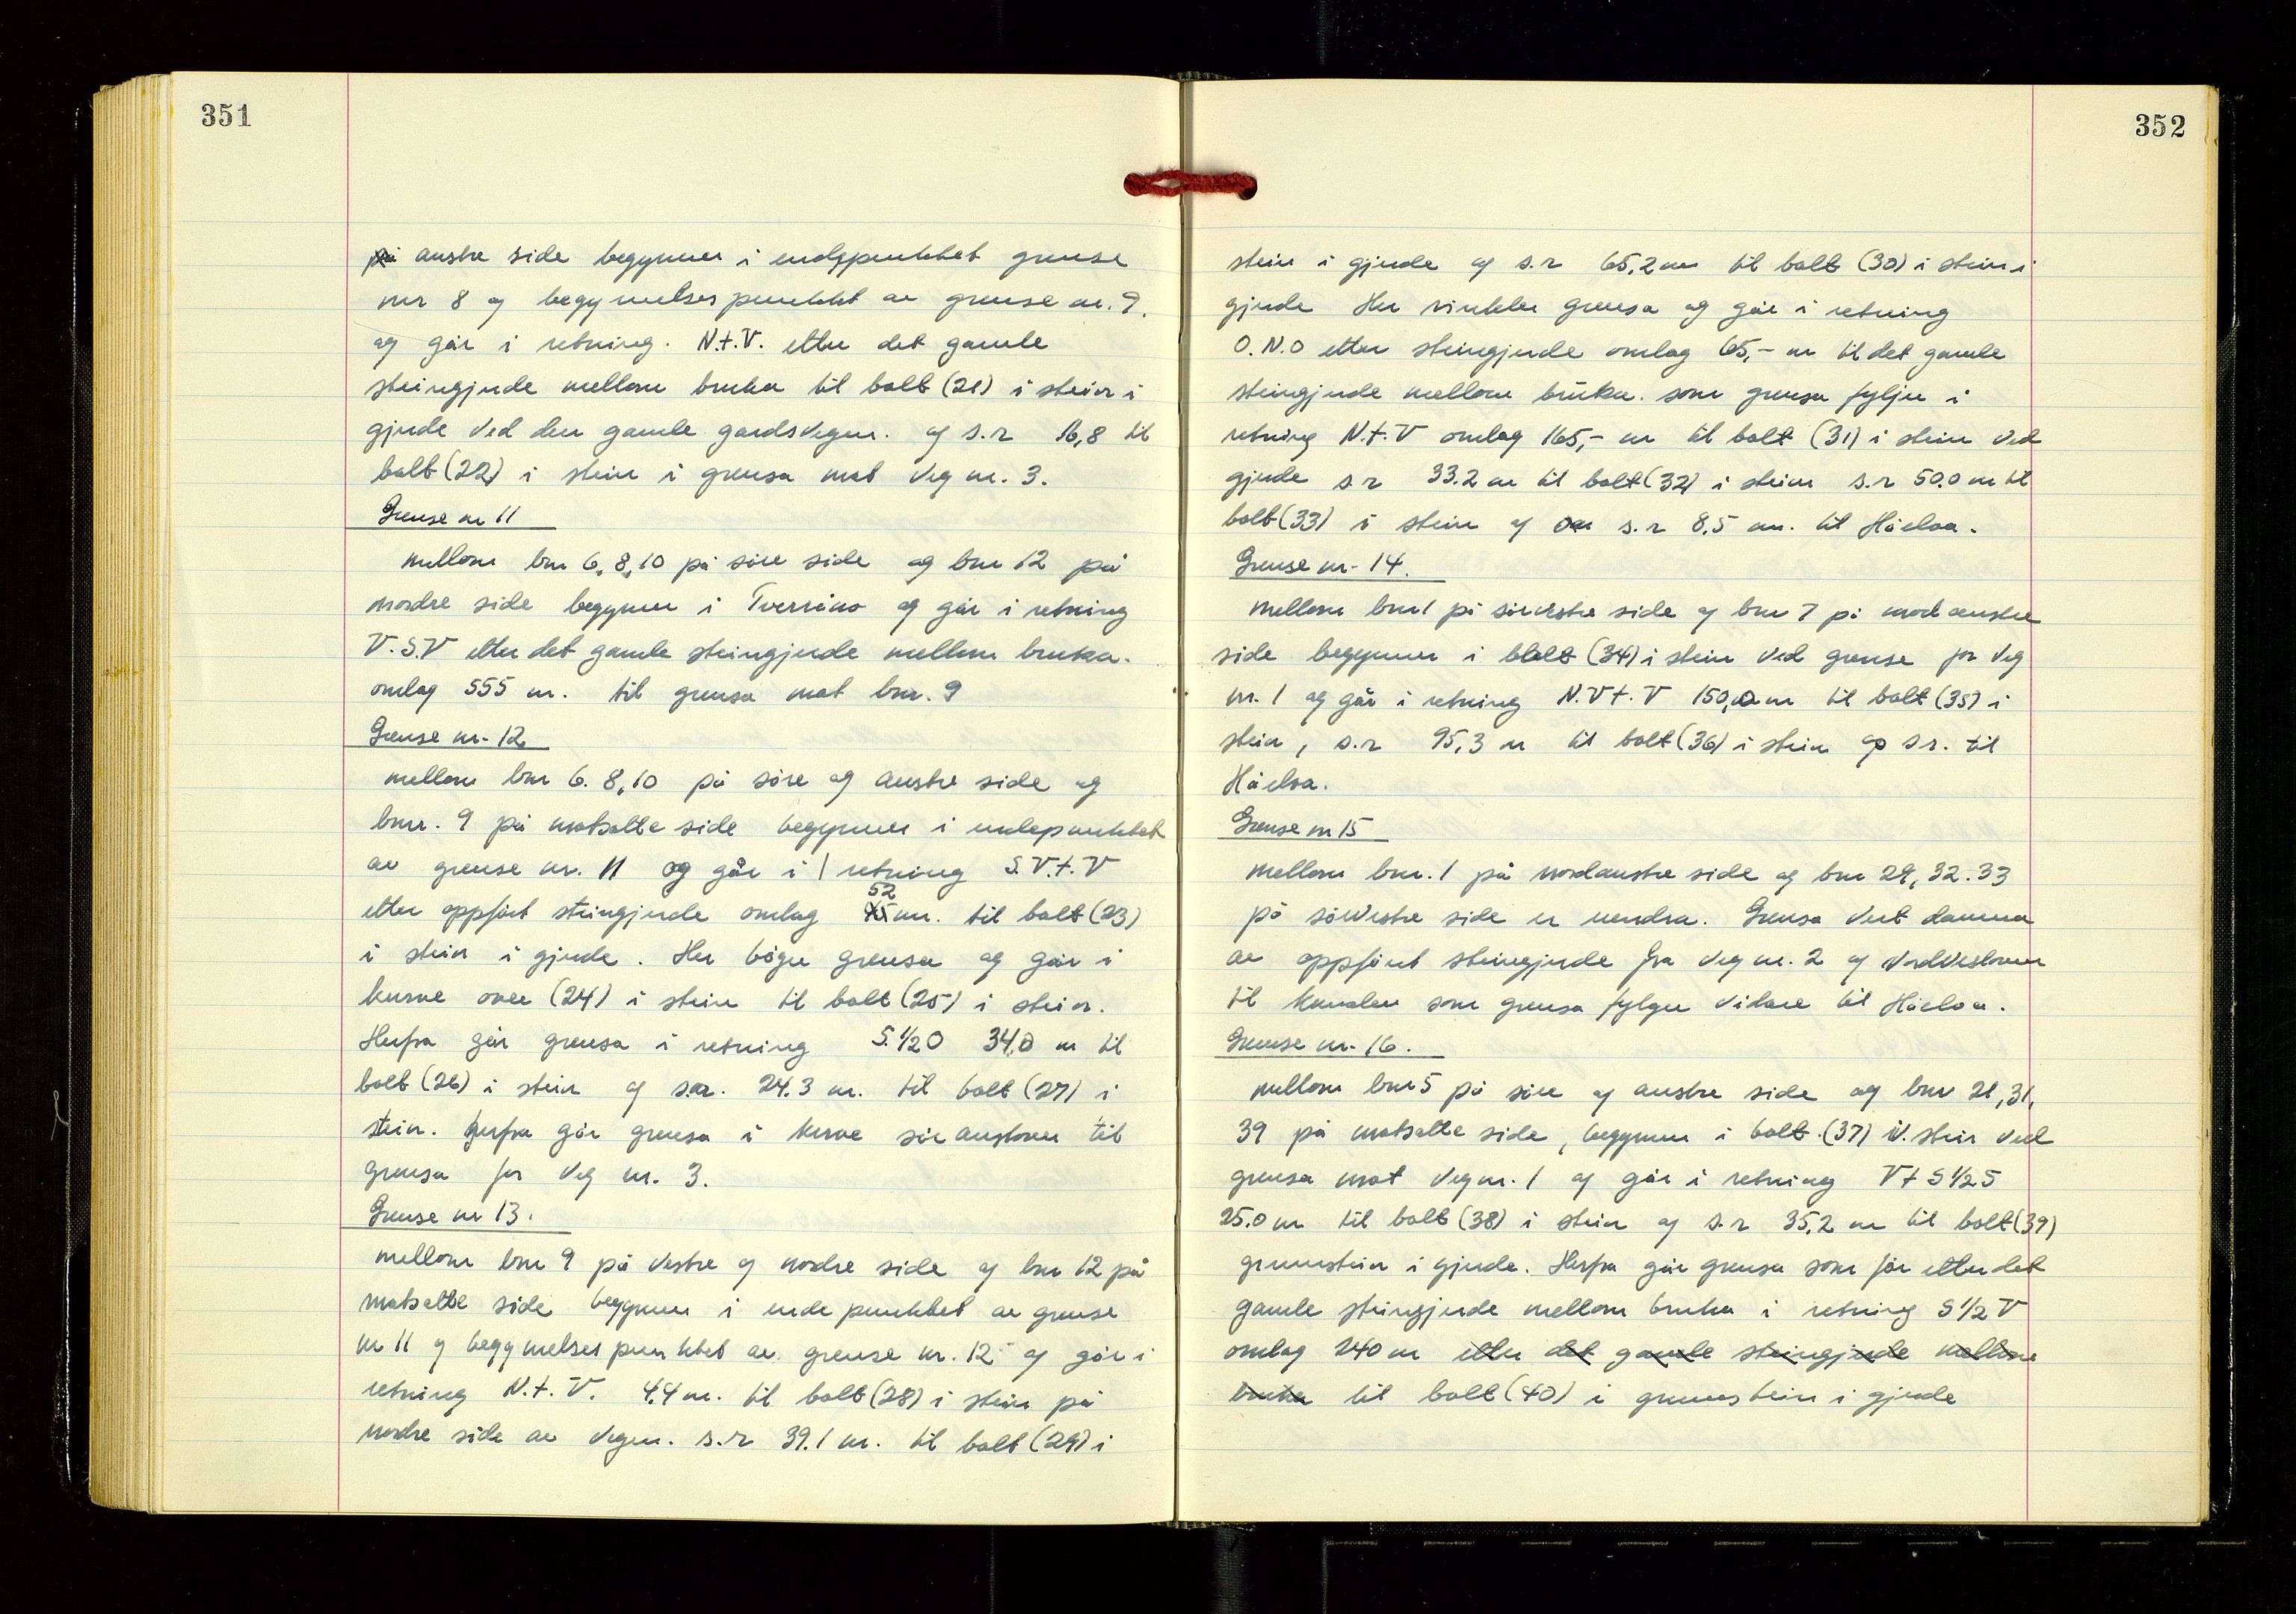 351
på austre side begynner i endepunktet grense
nr 8 og begynnelsespunktet av grense nr. 9.
og går i retning. N.t.V. etter det gamle
steingjerde mellom bruka til bolt (21) i stein i
gjerde ved den gamle gardsvegen. og s.r 16,8 til
bolt (22) i stein i grensa mot veg nr. 3.
Grense nr 11
mellom bnr 6, 8, 10 på søre side og bnr 12 på
nordre side begynner i Tverråno og går i retning
V.S.V etter det gamle steingjerde mellom bruka.
omlag 555 m. til grensa mot bnr. 9
Grense nr. 12
mellom bnr 6. 8, 10 på søre og austre side og
bnr. 9 på motsatte side begynner i endepunktet
av grense nr. 11 og går i retning S.V.t.V
etter oppført steingjerde omlag 52 m. til bolt (23)
i stein i gjerde. Her bøger grensa og går i
kurve over (24) i stein til bolt (25) i stein.
Herfra går grensa i retning S.1/2O 34,0 m til
bolt (26) i stein og s.r. 24.3 m. til bolt (27) i
stein. Herfra går grensa i kurve søraustover til
grensa for veg nr. 3.
Grense nr 13.
mellom bnr 9 på vestre og nordre side og bnr 12 på
motsatte side begynner i endepunktet av grense
nr 11 og begynnelsespunktet av grense nr. 12 og går i
retning N.t.V. 4,4 m. til bolt (28) i stein på
nordre side av vegen. s.r 39.1 m. til bolt (29) i
352
stein i gjerde og s.r 65,2 m til bolt (30) i stein i
gjerde Her vinkler grensa og går i retning
O.N.O etter steingjerde omlag 65,- m til det gamle
steingjerde mellom bruka. som grensa fyljer i
retning N.t.V omlag 165,- m til bolt (31) i stein ved
gjerde s.r 33.2 m til bolt (32) i stein s.r 50.0 m til
bolt (33) i stein og s.r 8.5 m. til Håelva.
Grense nr. 14.
mellom bnr 1 på sørvestre side og bnr 7 på nordaustre
side begynner i bolt (34) i stein ved grense for veg
nr. 1 og går i retning N.V.t.V 150,0 m til bolt (35) i
stein, s.r 95,3 m til bolt (36) i stein og s.r. til
Håelva.
Grense nr 15
mellom bnr. 1 på nordaustre side og bnr 29, 32. 33
på sørvestre side er uendra. Grensa vert danna
av oppført steingjerde fra veg nr. 2 og nordvestover
til kanalen som grensa fylgjer vidare til Håelva.
Grense nr. 16.
mellom bnr 5 på søre og austre side og bnr 21, 31,
39 på motsatte side, begynner i bolt (37) i stein ved
grensa mot veg nr. 1 og går i retning V t S 1/2 S
25.0 m til bolt (38) i stein og s.r 35,2 m til bolt (39)
grunnstein i gjerde. Herfra går grensa som før etter det
gamle steingjerde mellom bruka i retning S 1/2 V
omlag 240 m etter det gamle steingjerde mellom
bruka til bolt (40) i grunnstein i gjerde